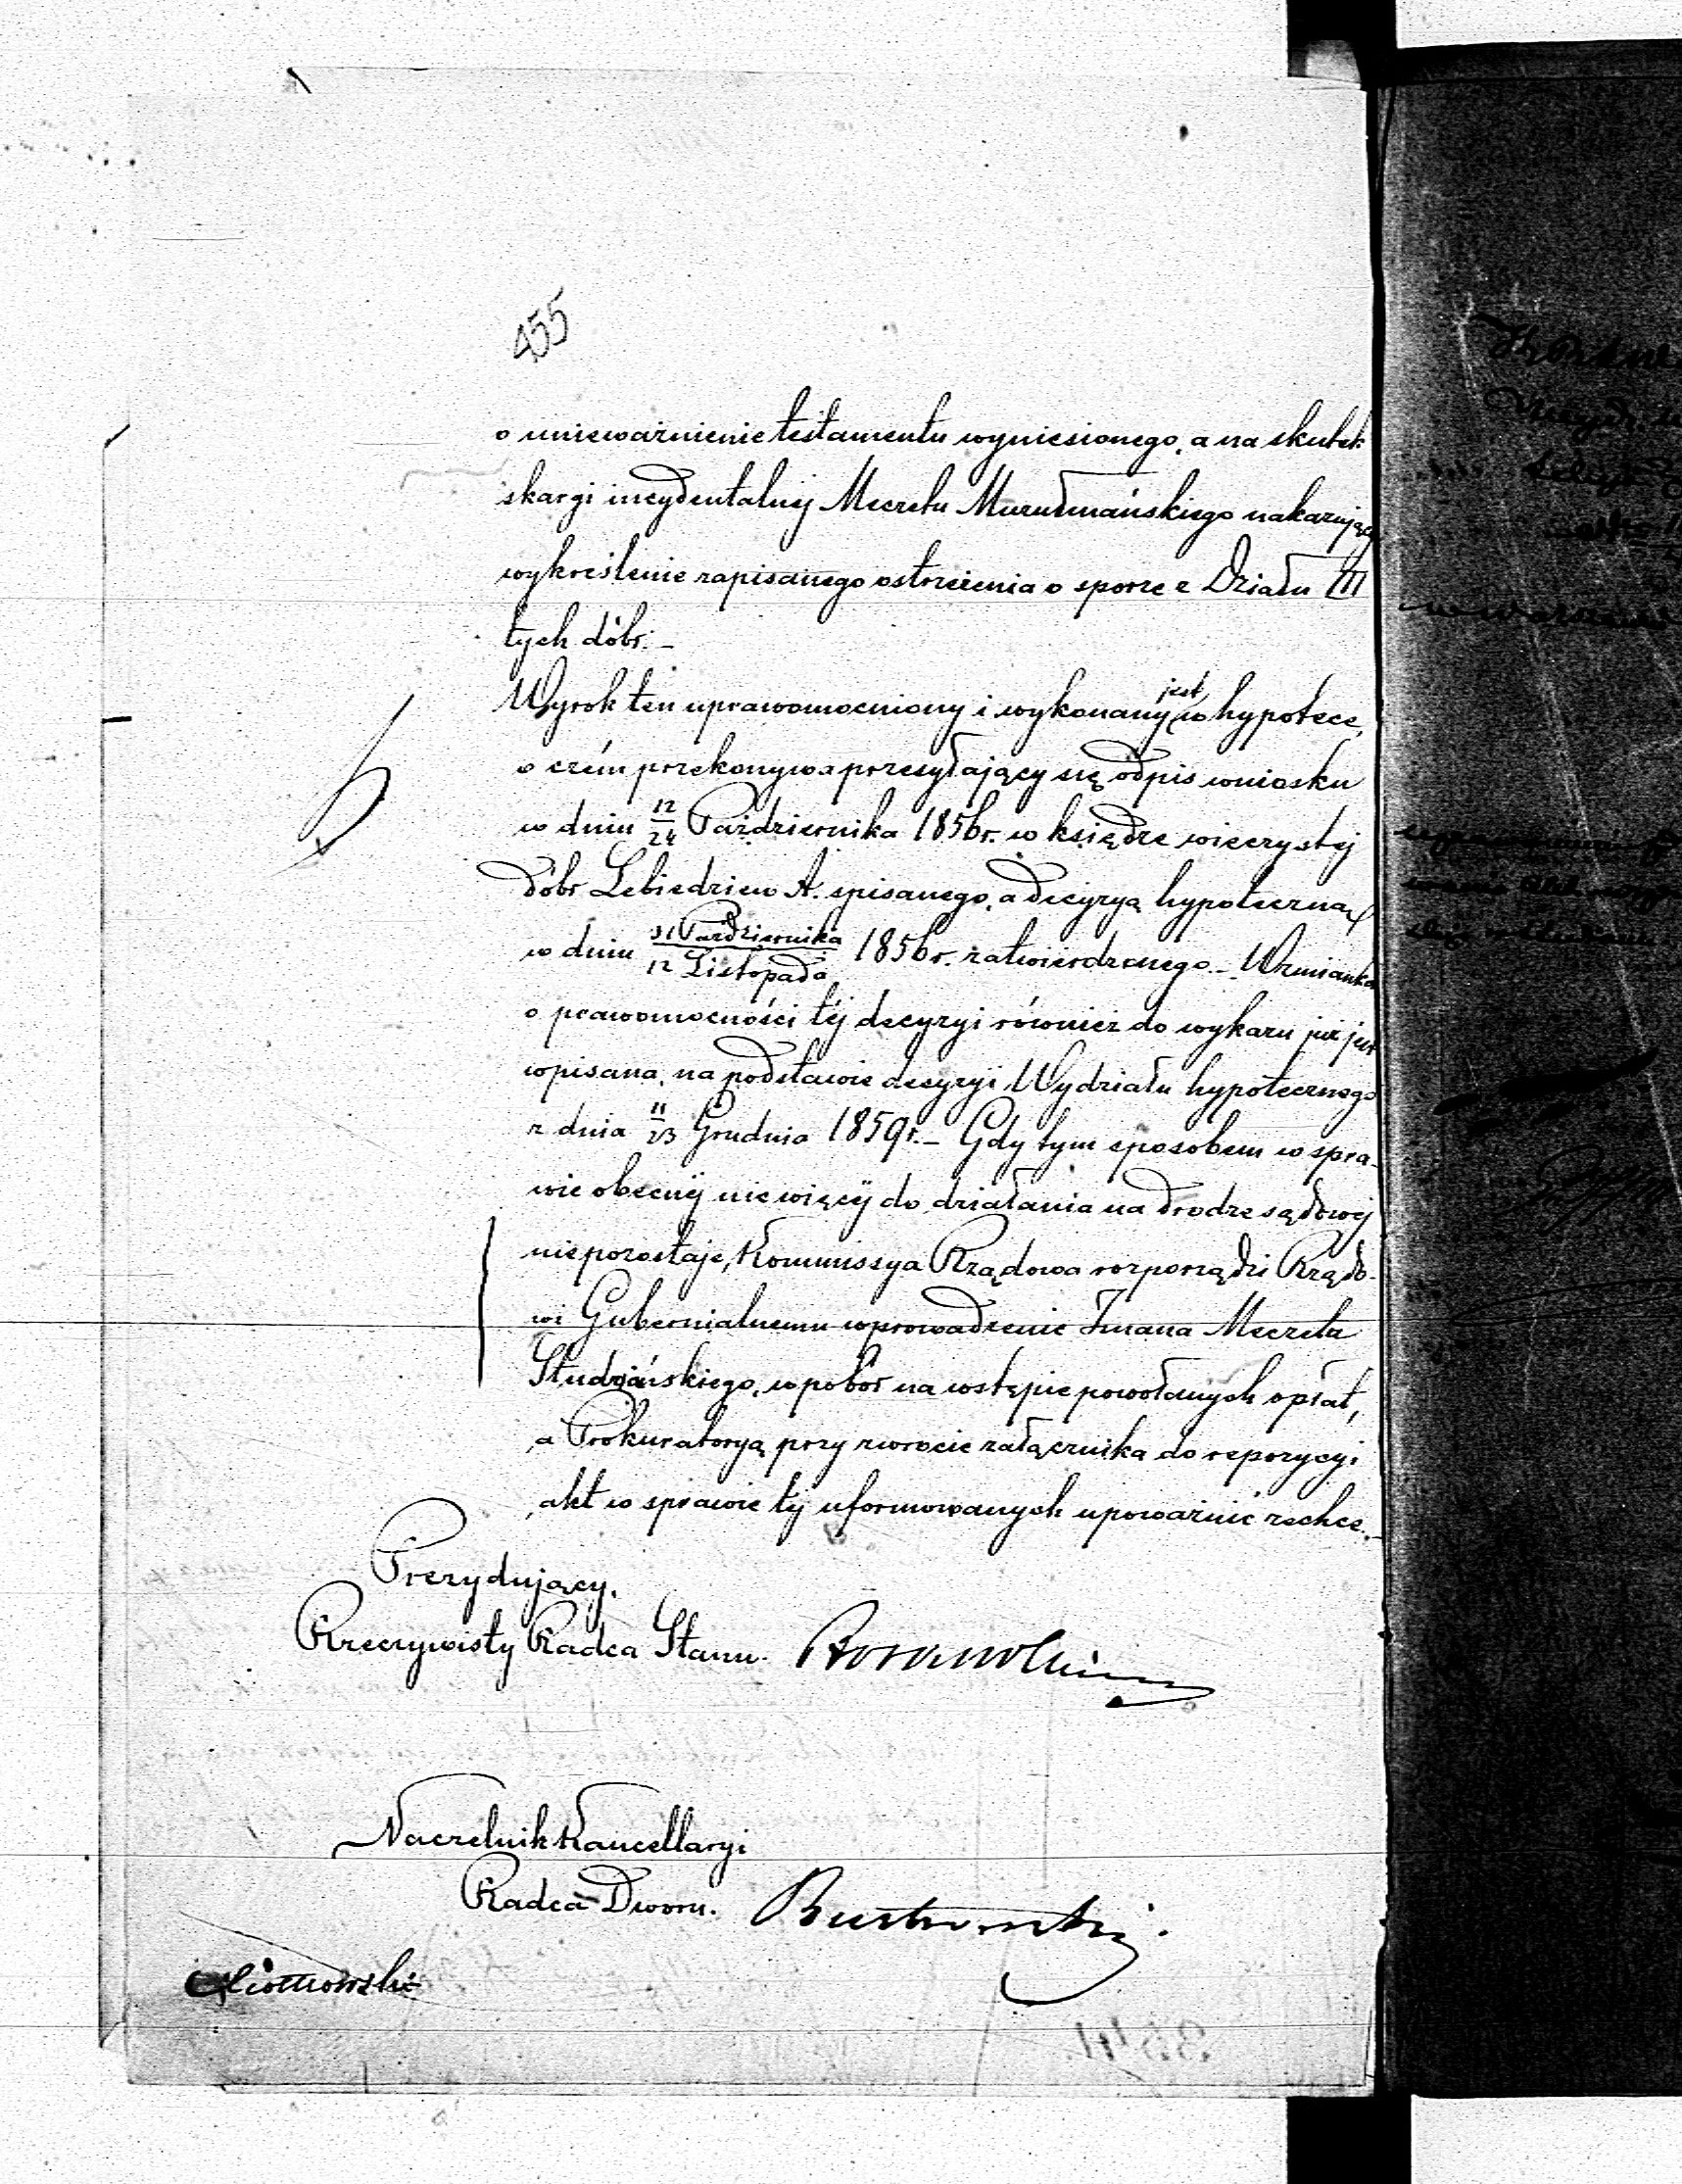 455
o unieważnienie testamentu wyniesionego, a na skutek
skargi incydentalnéj Meczetu Muzułmańskiego nakazujący
wykreślenie zapisanego ostrzeżenia o sporze z Działu III
tych dóbr.–
Wyrok ten uprawomocniony i wykonany jest w hypotece,
o czém przekonywa przesyłający się odpis wniosku
w dniu 12/24 Października 1856 r. w księdze wieczystéj
dóbr Lebiedziew A. spisanego, a decyzyą hypoteczną
w dniu 31 Października / 12 Listopada 1856 r. zatwierdzonego.– Wzmianka
o prawomocności téj decyzyi również do wykazu już jest
wpisana, na podstawie decyzyi Wydziału hypotecznego
z dnia 11/23 Grudnia 1859 r.– Gdy tym sposobem w spra-
wie obecnéj nic więcéj do działania na drodze sądowéj
niepozostaje, Kommissya Rządowa rozporządzi Rządo-
wi Gubernialnemu wprowadzenie Imana Meczetu
Studziańskiego, w pobór na wstępie powołanych opłat,
a Prokuratoryą przy zwrocie załącznika do repozycyi
akt w sprawie téj uformowanych upoważnić zechce.–
Prezydujący,
Rzeczywisty Radca Stanu.
Naczelnik Kancellaryi
Radca Dworu.